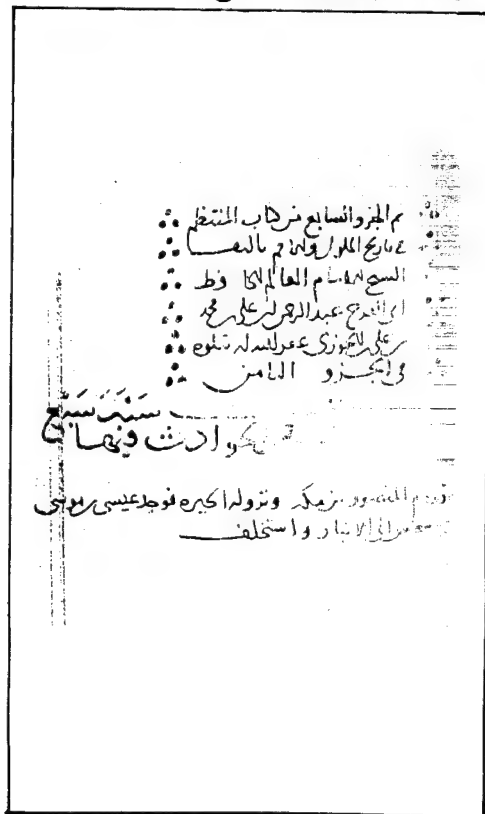 تم الجزو السابع من كتاب المنتظم
في تاريخ الملوك والامم تاليف
الشيخ الامام العالم الحافظ
ابي الفرج عبد الرحمن بن علي بن محمد
بن علي الجوزي عفر الله له تتلوه
في الجزو الثامن
سنة سبع
الحوادث فيها
قدوم المنصور من مكة ونزوله الحيرة فوجد عيسى بن موسى
الى الانبار واستخلف